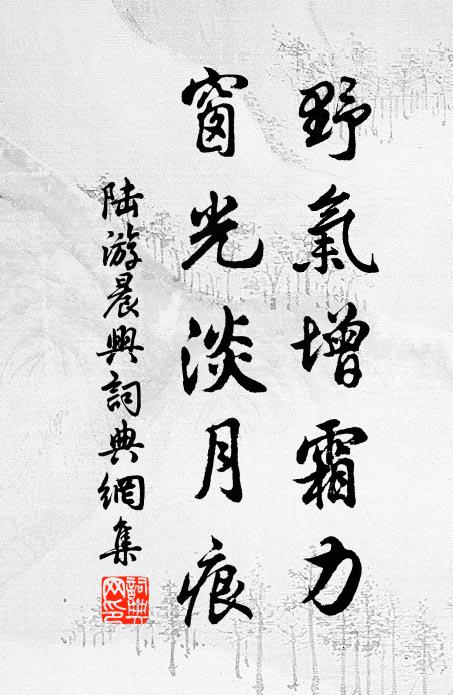 野氣增霜力
窗光淡月痕
陆游晨興詞典網集